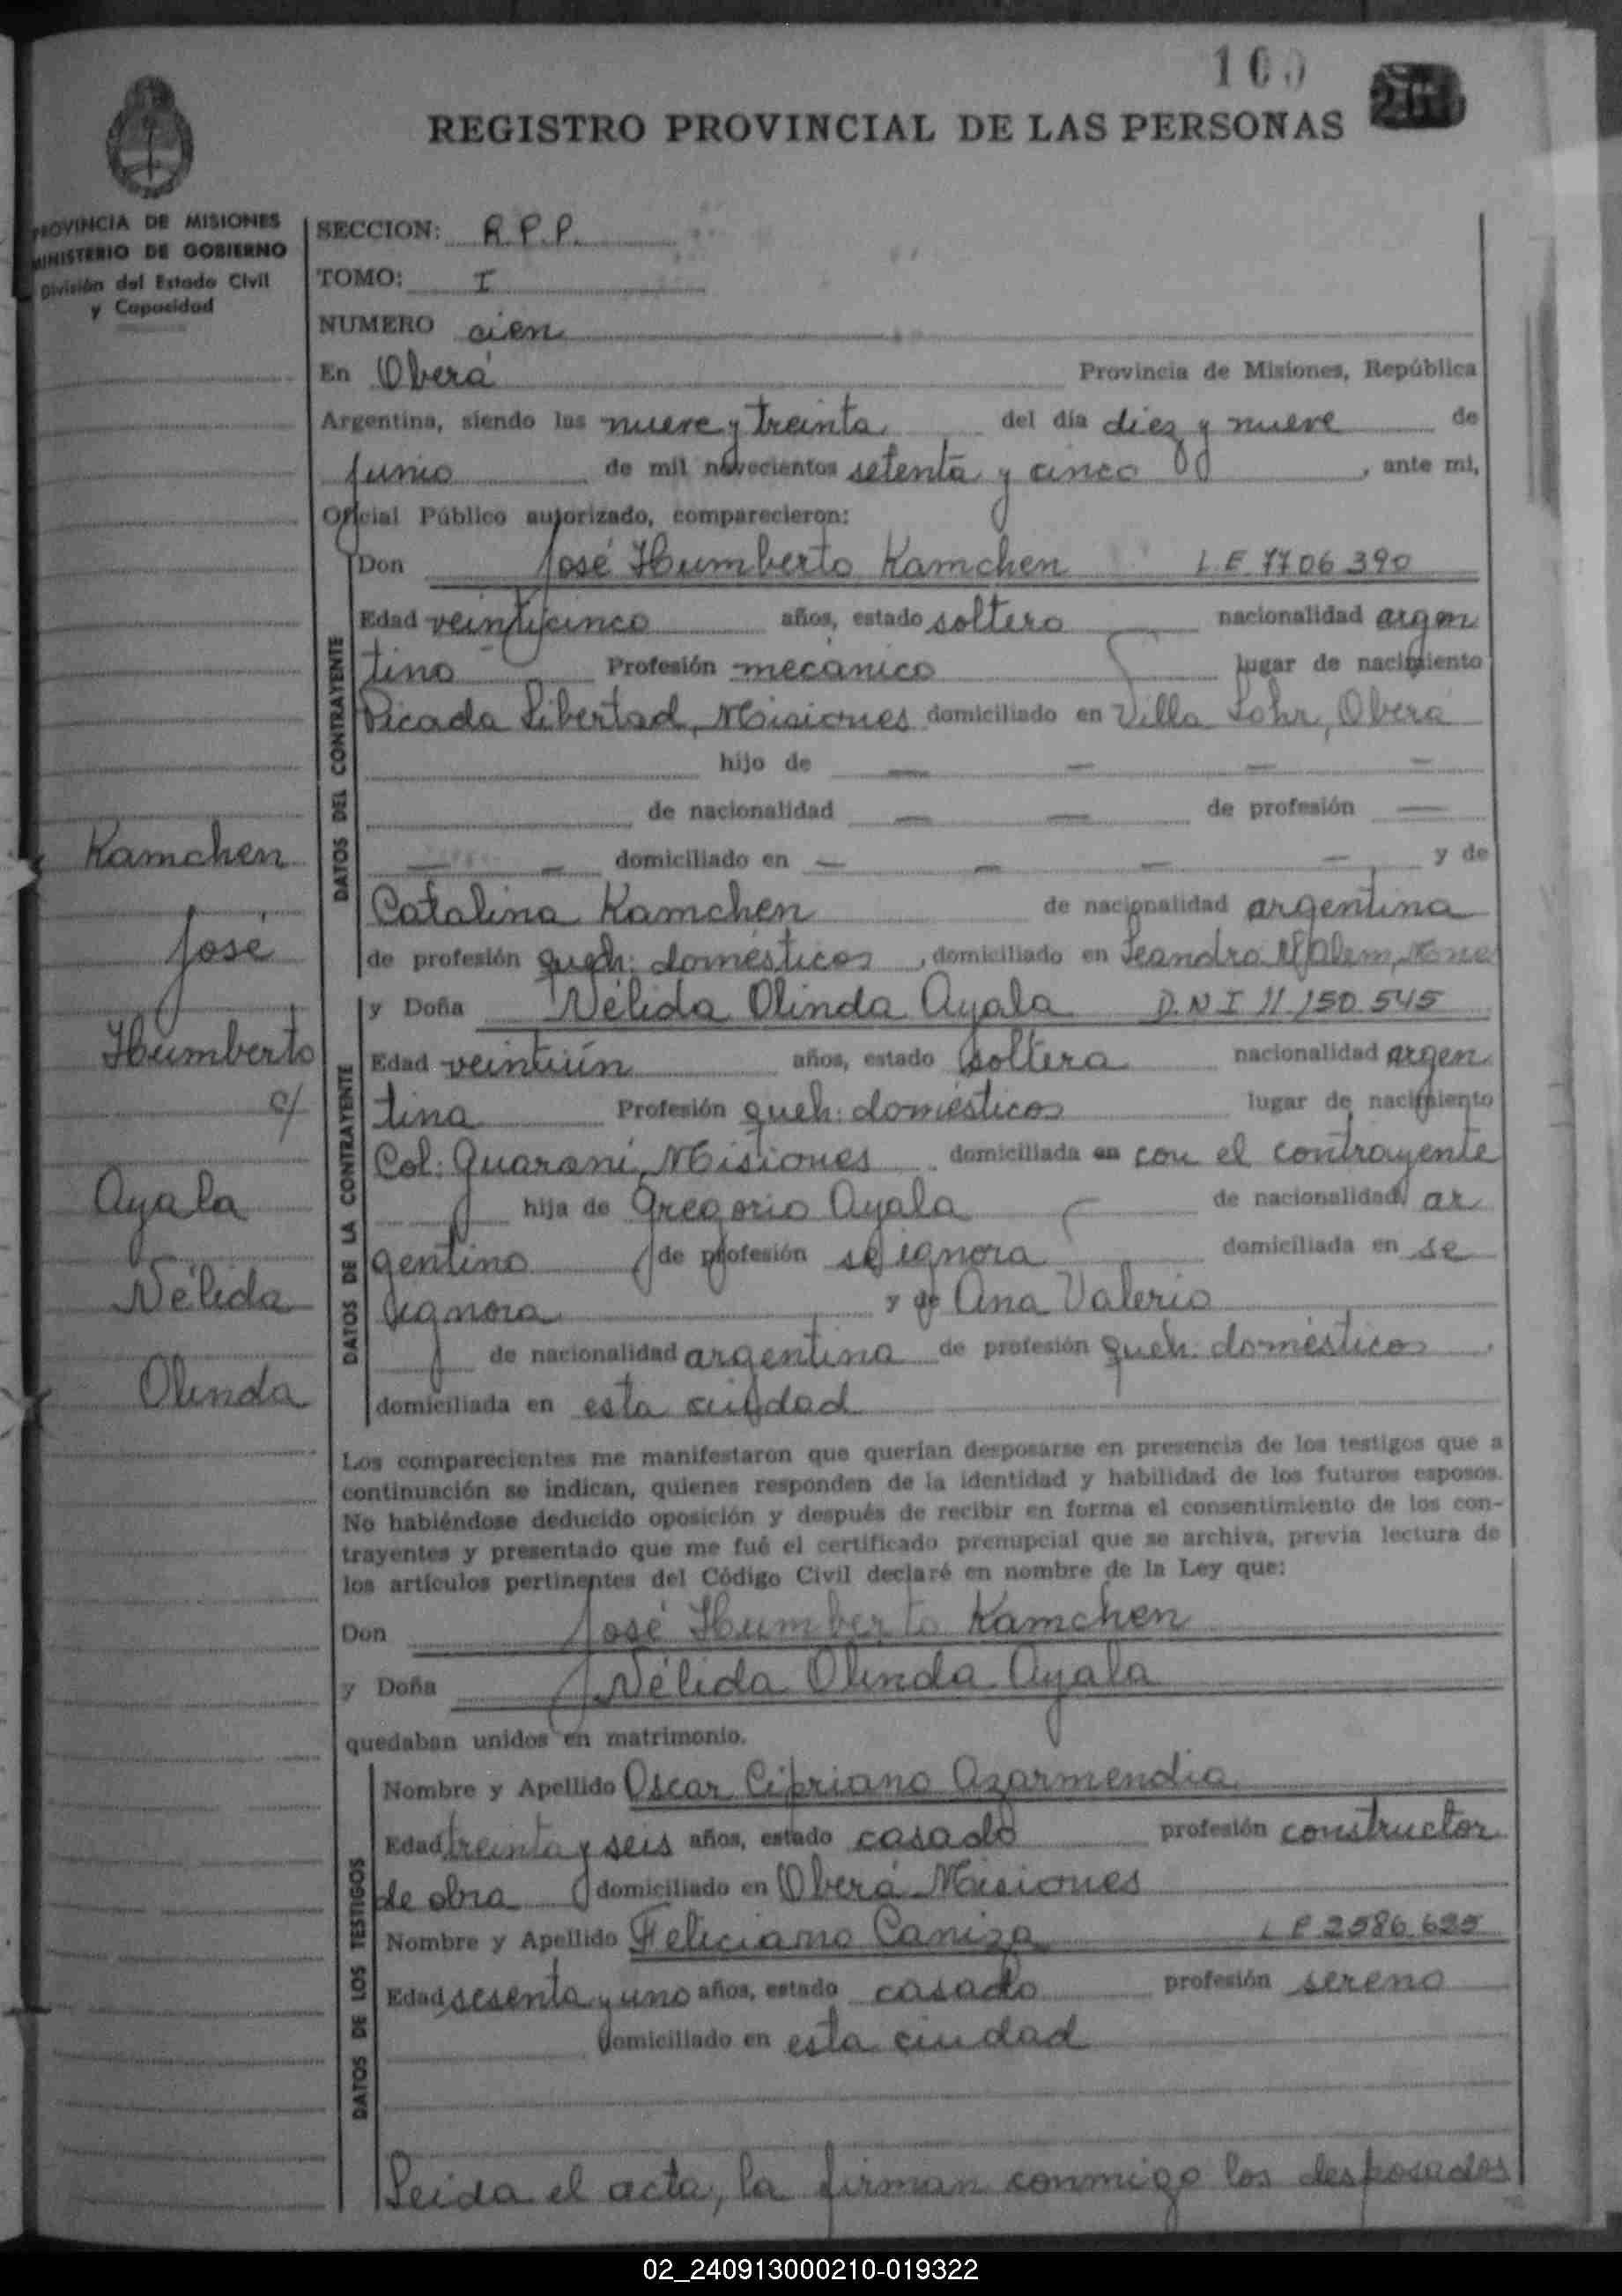 100
REGISTRO PROVINCIAL DE LAS PERSONAS
PROVINCIA DE MISIONES
MINISTERIO DE GOBIERNO
División del Estado Civil
y Capacidad
SECCION: R.P.P.
TOMO: I
NUMERO cien
En Oberá Provincia de Misiones, República
Argentina, siendo las nueve y treinta del día diez y nueve de
junio de mil novecientos setenta y cinco, ante mi,
Oficial Público autorizado, comparecieron:
DATOS DEL CONTRAYENTE
Don José Humberto Kamchen L.E. 7706390
Edad veinticinco años, estado soltero nacionalidad argen
tino Profesión mecánico lugar de nacimiento
Picada Libertad, Misiones domiciliado en Villa Lohr, Oberá
hijo de — — — —
de nacionalidad — — de profesión —
— — domiciliado en — — — — y de
Catalina Kamchen de nacionalidad argentina
de profesión queh: domésticos, domiciliado en Leandro N Alem, Mnes
DATOS DE LA CONTRAYENTE
y Doña Nélida Olinda Ayala D.N.I 11.150.545
Edad veintiún años, estado soltera nacionalidad argen
tina Profesión queh: domésticos lugar de nacimiento
Col: Guaraní, Misiones domiciliada en con el contrayente
hija de Gregorio Ayala de nacionalidad ar
gentino de profesión se ignora domiciliada en se
ignora y de Ana Valerio
de nacionalidad argentina de profesión queh: domésticos,
domiciliada en esta ciudad
Kamchen
José
Humberto
c/
Ayala
Nélida
Olinda
Los comparecientes me manifestaron que querían desposarse en presencia de los testigos que a
continuación se indican, quienes responden de la identidad y habilidad de los futuros esposos.
No habiéndose deducido oposición y después de recibir en forma el consentimiento de los con-
trayentes y presentado que me fué el certificado prenupcial que se archiva, previa lectura de
los artículos pertinentes del Código Civil declaré en nombre de la Ley que:
Don José Humberto Kamchen
y Doña Nélida Olinda Ayala
quedaban unidos en matrimonio.
DATOS DE LOS TESTIGOS
Nombre y Apellido Oscar Cipriano Azarmendia
Edad treinta y seis años, estado casado profesión constructor
de obra domiciliado en Oberá Misiones
Nombre y Apellido Feliciano Caniza L E 2586.625
Edad sesenta y uno años, estado casado profesión sereno
domiciliado en esta ciudad
Leida el acta, la firman conmigo los desposados
02_240913000210-019322